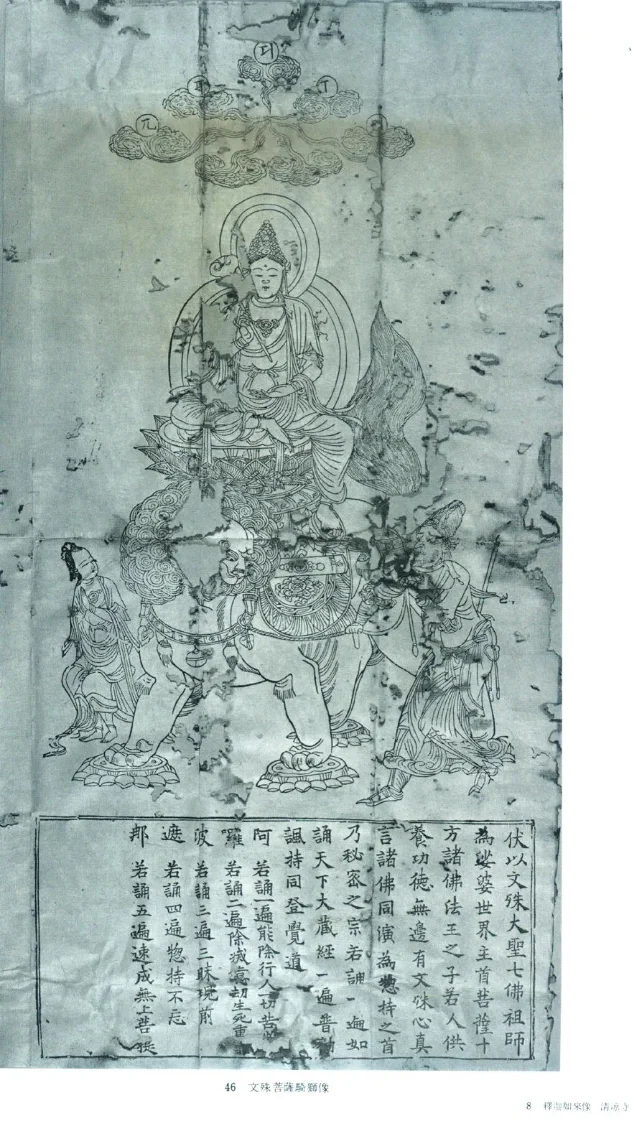 伏以文殊大聖七佛祖師
為娑婆世界主首菩薩十
方諸佛法王之子若人供
養功德無邊有文殊心真
言諸佛同演為惣持之首
乃秘密之宗若誦一遍如
誦天下大藏經一遍普
諷持同登覺道
阿 若誦一遍能除行人一切苦
囉 若誦二遍除滅億劫生死重
波 若誦三遍三昧現前
遮 若誦四遍惣持不忘
那 若誦五遍速成無上菩提
46 文殊菩薩騎獅像
8 釋迦如來像 清凉寺